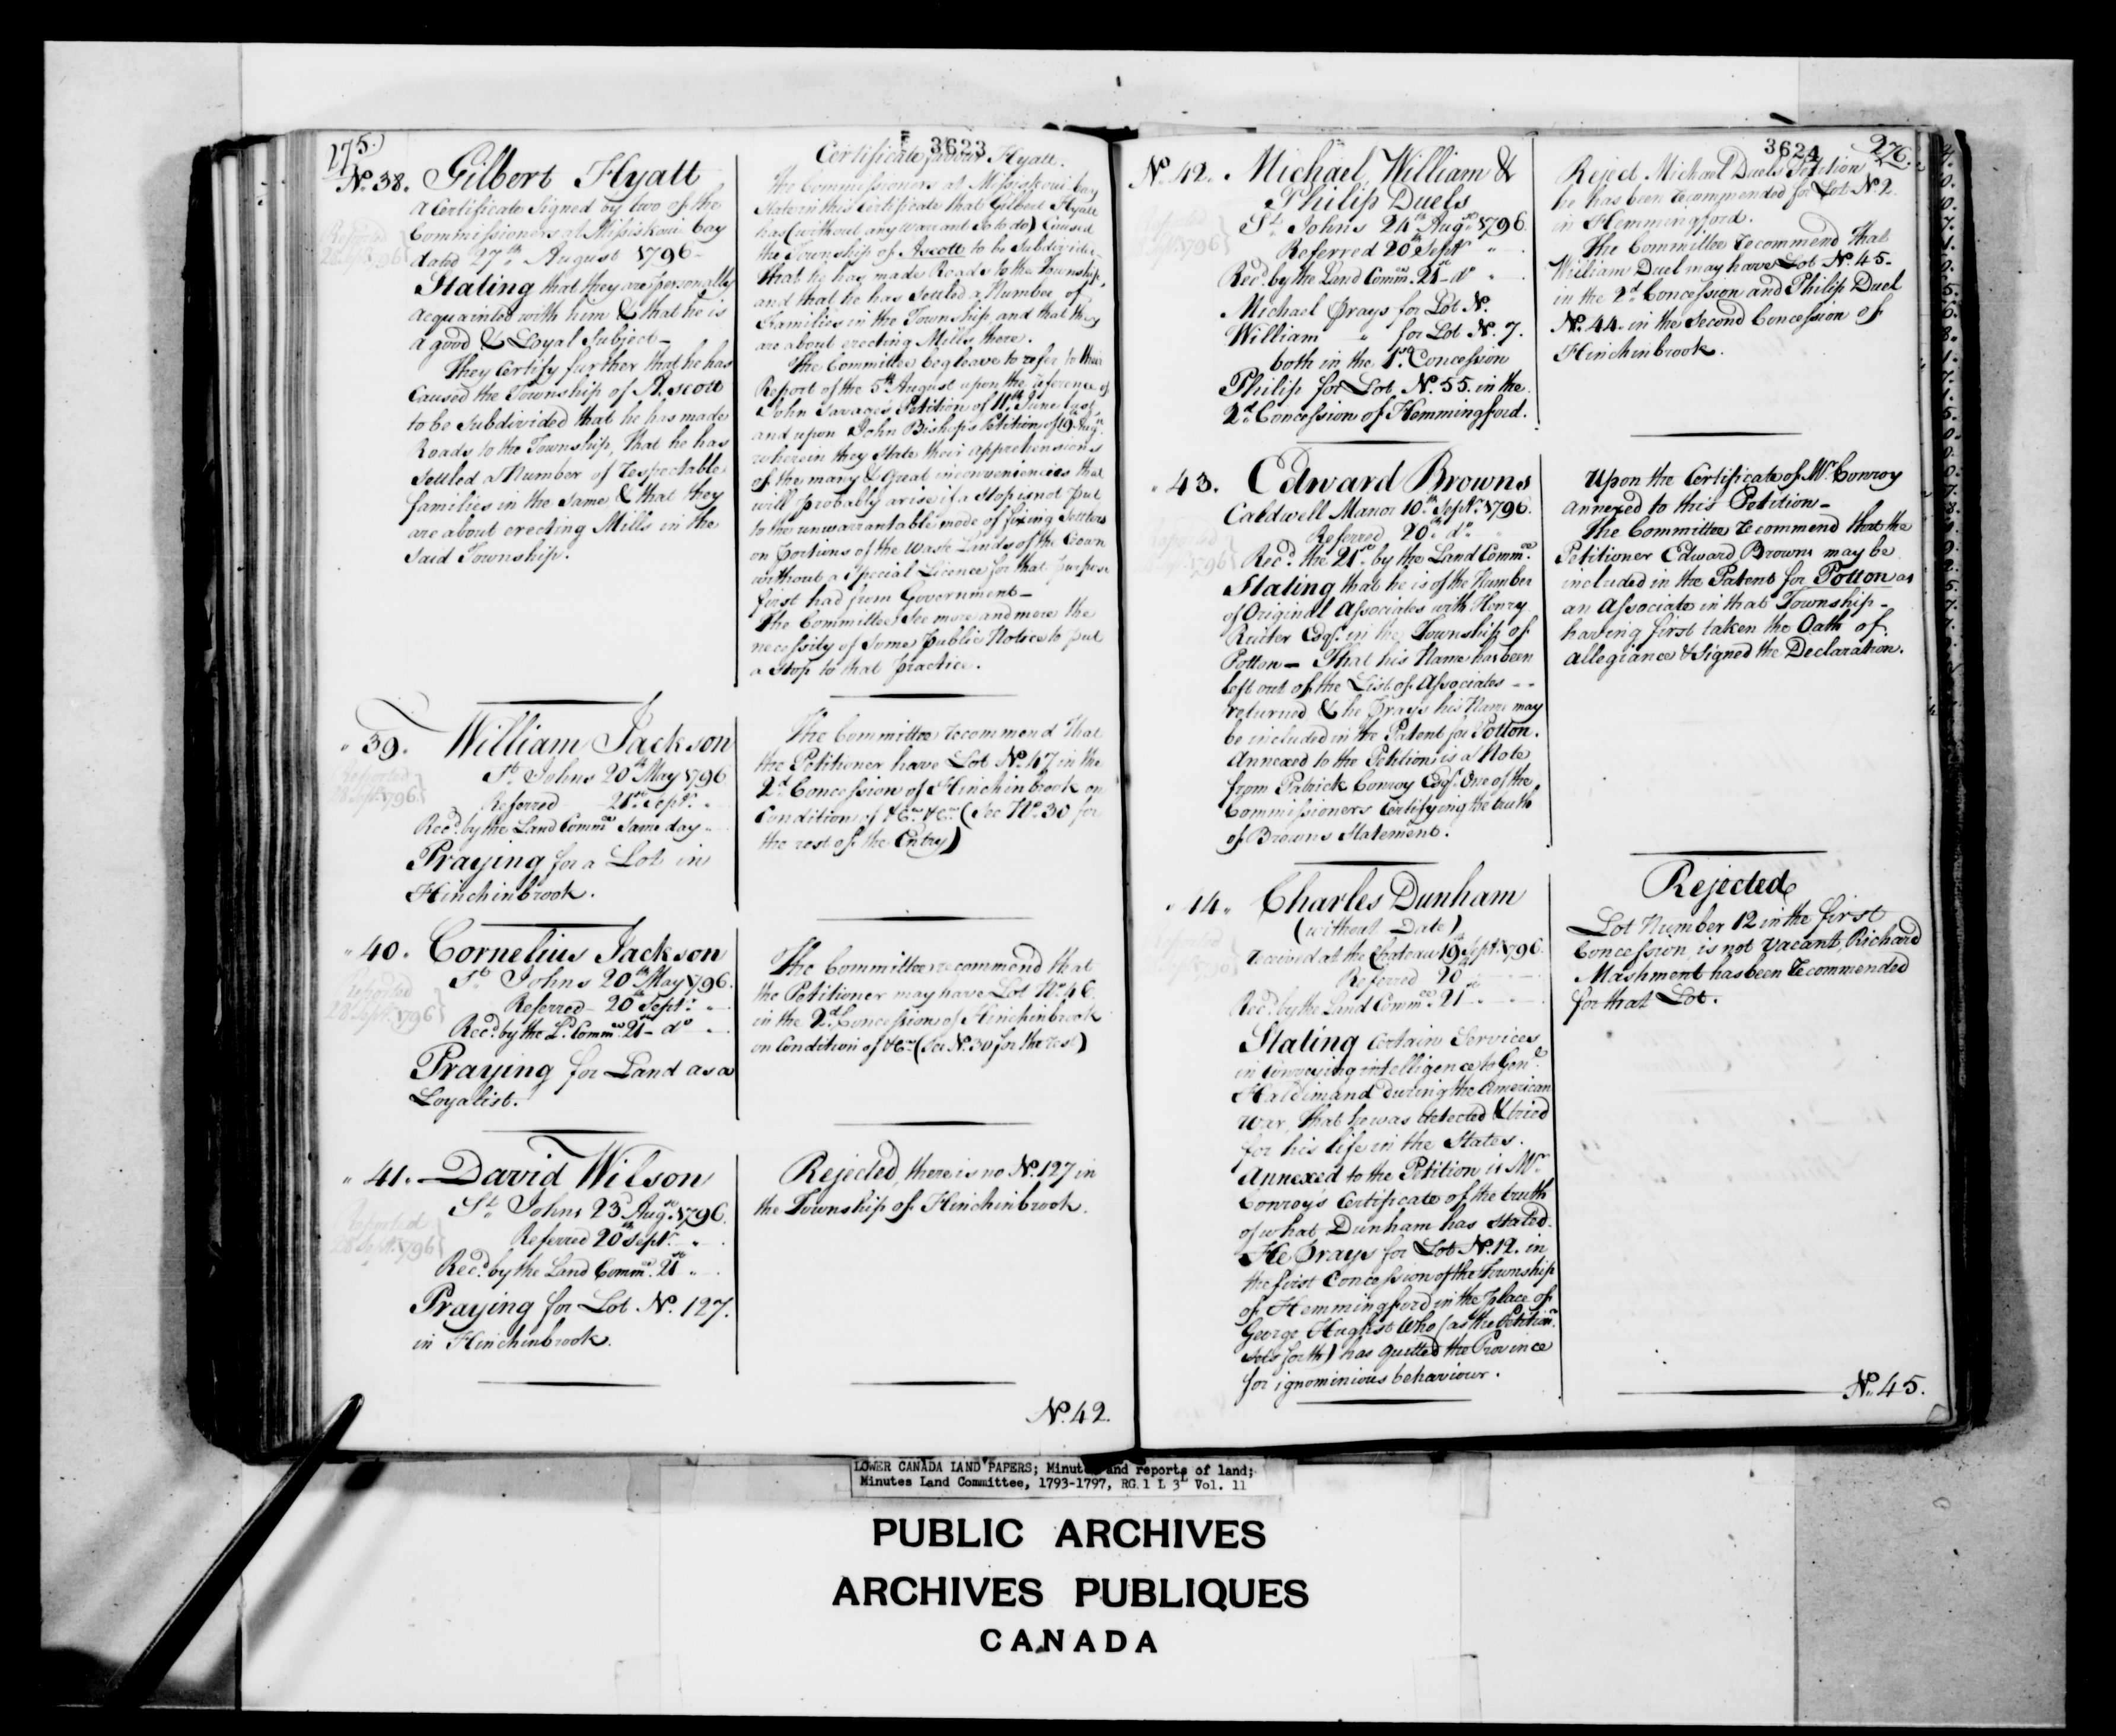 275.)
3623
No. 38. Gilbert Hyatt
A Certificate Signed by two of the
Commissioners at Missiskoui bay
dated 27th August 1796-
Stating that they are personally
acquainted with him & that he is
a good & Loyal Subject-
They Certify further that he has
Caused the Township of Ascott
to be Subdivided that he has made
Roads to the Township, That he has
settled a Number of respectable
families in the Same & that they
are about erecting Mills in the
Said Township.
Reported
28 Sept. 1796
Certificate favour Hyatt.
The Commissioners at Missiskoui bay
State in this Certificate that Gilbert Hyatt
has (without any warrant so to do) Caused
the Township of Ascott to be Subdivided-
That he has made Roads to the Township,
and that he has settled a Number of
Families in the Township, and that they
are about erecting Mills there.
The Committee beg leave to refer to their
Report of the 5th August upon the reference of
John Savage's Petition of 11th June last,
and upon John Bishop's Petition of 19 Augt.
wherein they state their apprehensions
of the many & Great inconveniencies that
will probably arise if a Stop is not put
to the unwarrantable mode of fixing Settlers
on portions of the Waste Lands of the Crown
without a Special Licence for that purpose
first had from Government-
The Committee See more and more the
necessity of Some Public Notice to put
a Stop to that practice.
" 39. William Jackson
St. Johns 20th May 1796
Referred 21st Septr. "
Recd. by the Land Commee Same day "
Praying for a Lot in
Hinchinbrook.
Reported
28 Sept. 1796
The Committee recommend That
the Petitioner have Lot No. 47 in the
2d Concession of Hinchinbrook on
Condition of &Ca &Ca (See No. 30 for
the rest of the Entry)
" 40. Cornelius Jackson
St. Johns 20th May 1796.
Referred- 20th Septr. "
Recd. by the Ld. Commee 21st- do "
Praying for Land as a
Loyalist.
Reported
28 Septr. 1796
The Committee recommend that
the Petitioner may have Lot No. 46
in the 2d Concession of Hinchinbrook
on Condition of &Ca (See No. 30 for the rest)
" 41. David Wilson
St. Johns 23d Augt. 1796.
Referred 20th Septr. "
Recd. by the Land Commee. 21st "
Praying for Lot No. 127.
in Hinchinbrook.
Reported
28 Septr. 1796
Rejected, there is no No. 127 in
the Township of Hinchinbrook.
No. 42.
3624
276.
No. 42. Michael, William &
Philip Duels
St. Johns 24th Augst. 1796.
Referred 20th Septr. "
Recd. by the Land Commee. 21st- do "
Michael Prays for Lot No.
William " for Lot No. 7.
both in the 1st Concession
Philip for Lot No. 55. in the
2d Concession of Hemmingford.
Reported
1796
Reject Michael Duels Petition
he has been recommended for Lot No. 2
in Hemmingford.
The Committee recommend That
William Duel may have Lot No. 45-
in the 2d Concession and Philip Duel
No. 44. in the Second Concession of
Hinchinbrook.
" 43. Edward Browns
Caldwell Manor 10th Septr. 1796.
Referred 20th do
Recd. the 21st by the Land Commee.
Stating that he is of the Number
of Original Associates with Henry
Ruiter Esqr. in the Township of
Potton- That his Name has been
left out of the List of Associates - -
returned & he Prays his Name may
be included in the Patent for Potton.
Annexed to the Petition is a Note
from Patrick Conroy Esqr. One of the
Commissioners Certifying the truth
of Browns Statement.
Reported
1796
Upon the Certificate of Mr. Conroy
annexed to this Petition-
The Committee recommend that the
Petitioner Edward Browns may be
included in the Patent for Potton as
an Associate in that Township-
having first taken the Oath of
allegiance & Signed the Declaration.
" 44. Charles Dunham
(without Date)
received at the Chateau 19th Septr. 1796.
Referred 20
Recd. by the Land Commee. 21st
Stating Certain Services
in Conveying intelligence to Genl.
Haldimand during the American
War, that he was detected & tried
for his life in the States.
Annexed to the Petition is Mr.
Conroy's Certificate of the truth
of what Dunham has stated.
He Prays for Lot No. 12. in
the first Concession of the Township
of Hemmingford in the place of
George Hughst Who (as the Petition
sets forth) has quitted the Province
for ignominious behaviour.
Reported
Rejected
Lot Number 12 in the first
Concession, is not vacant, Richard
Mashment has been recommended
for that Lot.
No. 45.
LOWER CANADA LAND PAPERS; Minutes and reports of land;
Minutes Land Committee, 1793-1797, RG.1 L 3L Vol. 11
PUBLIC ARCHIVES
ARCHIVES PUBLIQUES
CANADA